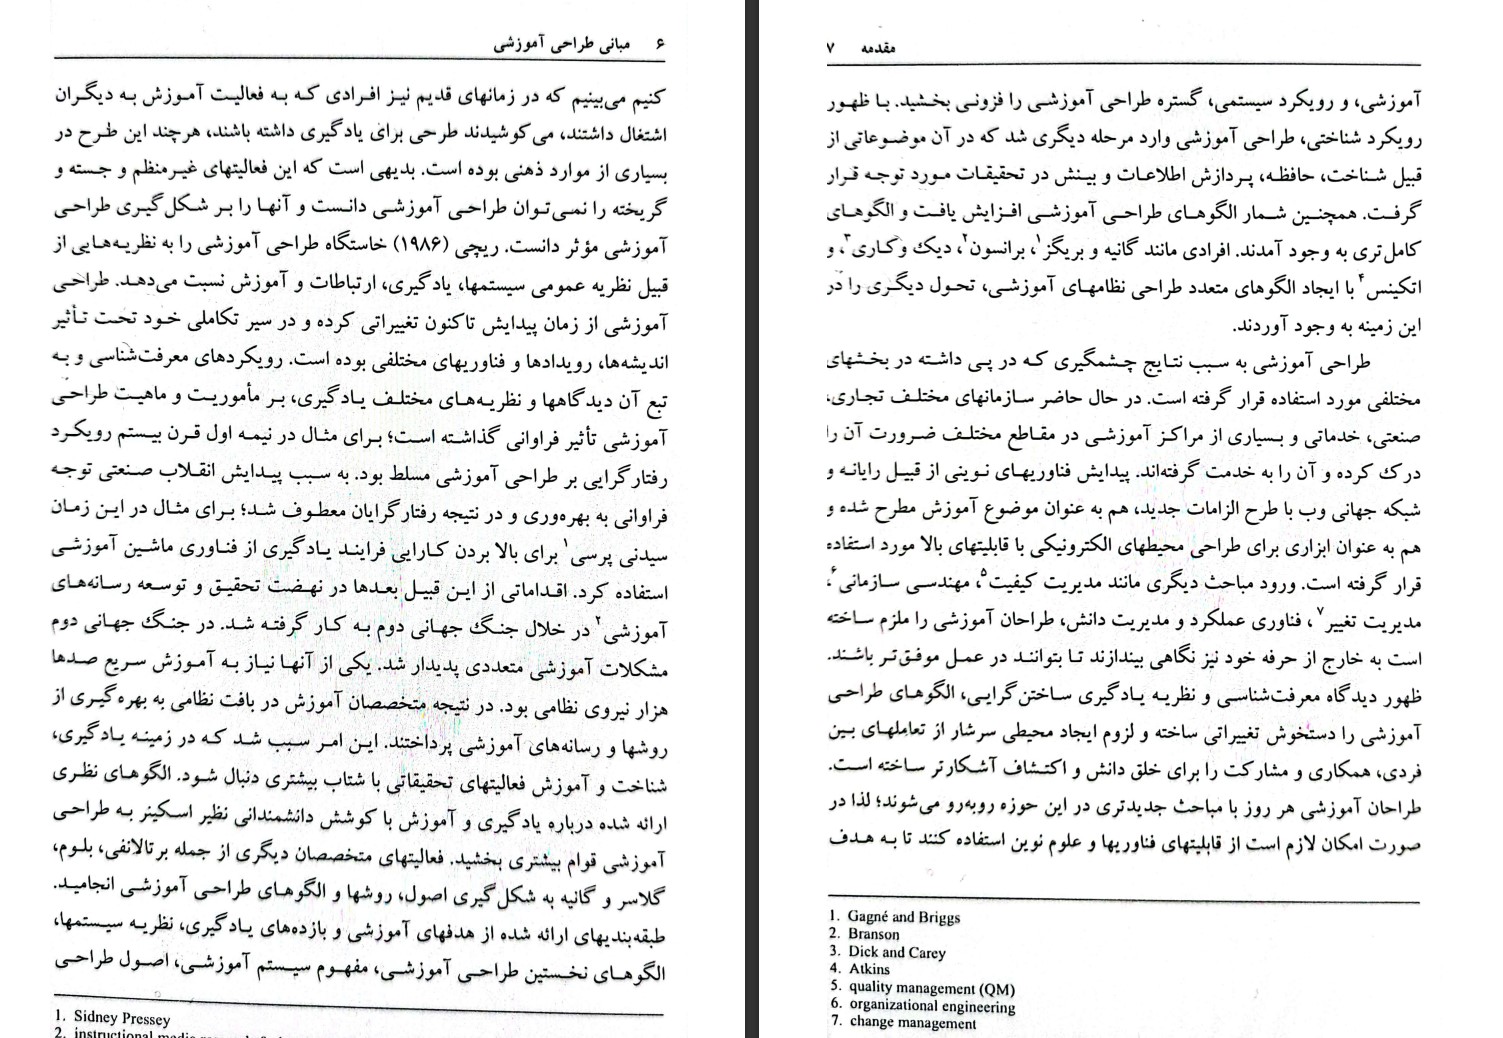 ۶ مبانی طراحی آموزشی
کنیم می‌بینیم که در زمانهای قدیم نیز افرادی که به فعالیت آموزش به دیگران
اشتغال داشتند، می‌کوشیدند طرحی برای یادگیری داشته باشند، هرچند این طرح در
بسیاری از موارد ذهنی بوده است. بدیهی است که این فعالیتهای غیرمنظم و جسته و
گریخته را نمی‌توان طراحی آموزشی دانست و آنها را بر شکل‌گیری طراحی
آموزشی مؤثر دانست. ریچی (۱۹۸۶) خاستگاه طراحی آموزشی را به نظریه‌هایی از
قبیل نظریه عمومی سیستمها، یادگیری، ارتباطات و آموزش نسبت می‌دهد. طراحی
آموزشی از زمان پیدایش تاکنون تغییراتی کرده و در سیر تکاملی خود تحت تأثیر
اندیشه‌ها، رویدادها و فناوریهای مختلفی بوده است. رویکردهای معرفت‌شناسی و به
تبع آن دیدگاهها و نظریه‌های مختلف یادگیری، بر مأموریت و ماهیت طراحی
آموزشی تأثیر فراوانی گذاشته است؛ برای مثال در نیمه اول قرن بیستم رویکرد
رفتارگرایی بر طراحی آموزشی مسلط بود. به سبب پیدایش انقلاب صنعتی توجه
فراوانی به بهره‌وری و در نتیجه رفتارگرایان معطوف شد؛ برای مثال در این زمان
سیدنی پرسی۱ برای بالا بردن کارایی فرایند یادگیری از فناوری ماشین آموزشی
استفاده کرد. اقداماتی از این قبیل بعدها در نهضت تحقیق و توسعه رسانه‌های
آموزشی۲ در خلال جنگ جهانی دوم به کار گرفته شد. در جنگ جهانی دوم
مشکلات آموزشی متعددی پدیدار شد. یکی از آنها نیاز به آموزش سریع صدها
هزار نیروی نظامی بود. در نتیجه متخصصان آموزش در بافت نظامی به بهره‌گیری از
روشها و رسانه‌های آموزشی پرداختند. این امر سبب شد که در زمینه یادگیری،
شناخت و آموزش فعالیتهای تحقیقاتی با شتاب بیشتری دنبال شود. الگوهای نظری
ارائه شده درباره یادگیری و آموزش با کوشش دانشمندانی نظیر اسکینر به طراحی
آموزشی قوام بیشتری بخشید. فعالیتهای متخصصان دیگری از جمله برتالانفی، بلوم،
گلاسر و گانیه به شکل‌گیری اصول، روشها و الگوهای طراحی آموزشی انجامید.
طبقه‌بندیهای ارائه شده از هدفهای آموزشی و بازده‌های یادگیری، نظریه سیستمها،
الگوهای نخستین طراحی آموزشی، مفهوم سیستم آموزشی، اصول طراحی
1. Sidney Pressey
2. instructional media
مقدمه ۷
آموزشی، و رویکرد سیستمی، گستره طراحی آموزشی را فزونی بخشید. با ظهور
رویکرد شناختی، طراحی آموزشی وارد مرحله دیگری شد که در آن موضوعاتی از
قبیل شناخت، حافظه، پردازش اطلاعات و بینش در تحقیقات مورد توجه قرار
گرفت. همچنین شمار الگوهای طراحی آموزشی افزایش یافت و الگوهای
کامل‌تری به وجود آمدند. افرادی مانند گانیه و بریگز۱، برانسون۲، دیک وکاری۳، و
اتکینس۴ با ایجاد الگوهای متعدد طراحی نظامهای آموزشی، تحول دیگری را در
این زمینه به وجود آوردند.
طراحی آموزشی به سبب نتایج چشمگیری که در پی داشته در بخشهای
مختلفی مورد استفاده قرار گرفته است. در حال حاضر سازمانهای مختلف تجاری،
صنعتی، خدماتی و بسیاری از مراکز آموزشی در مقاطع مختلف ضرورت آن را
درک کرده و آن را به خدمت گرفته‌اند. پیدایش فناوریهای نوینی از قبیل رایانه و
شبکه جهانی وب با طرح الزامات جدید، هم به عنوان موضوع آموزش مطرح شده و
هم به عنوان ابزاری برای طراحی محیطهای الکترونیکی با قابلیتهای بالا مورد استفاده
قرار گرفته است. ورود مباحث دیگری مانند مدیریت کیفیت۵، مهندسی سازمانی۶،
مدیریت تغییر۷، فناوری عملکرد و مدیریت دانش، طراحان آموزشی را ملزم ساخته
است به خارج از حرفه خود نیز نگاهی بیندازند تا بتوانند در عمل موفق‌تر باشند.
ظهور دیدگاه معرفت‌شناسی و نظریه یادگیری ساختن‌گرایی، الگوهای طراحی
آموزشی را دستخوش تغییراتی ساخته و لزوم ایجاد محیطی سرشار از تعاملهای بین
فردی، همکاری و مشارکت را برای خلق دانش و اکتشاف آشکارتر ساخته است.
طراحان آموزشی هر روز با مباحث جدیدتری در این حوزه روبه‌رو می‌شوند؛ لذا در
صورت امکان لازم است از قابلیتهای فناوریها و علوم نوین استفاده کنند تا به هدف
1. Gagné and Briggs
2. Branson
3. Dick and Carey
4. Atkins
5. quality management (QM)
6. organizational engineering
7. change management